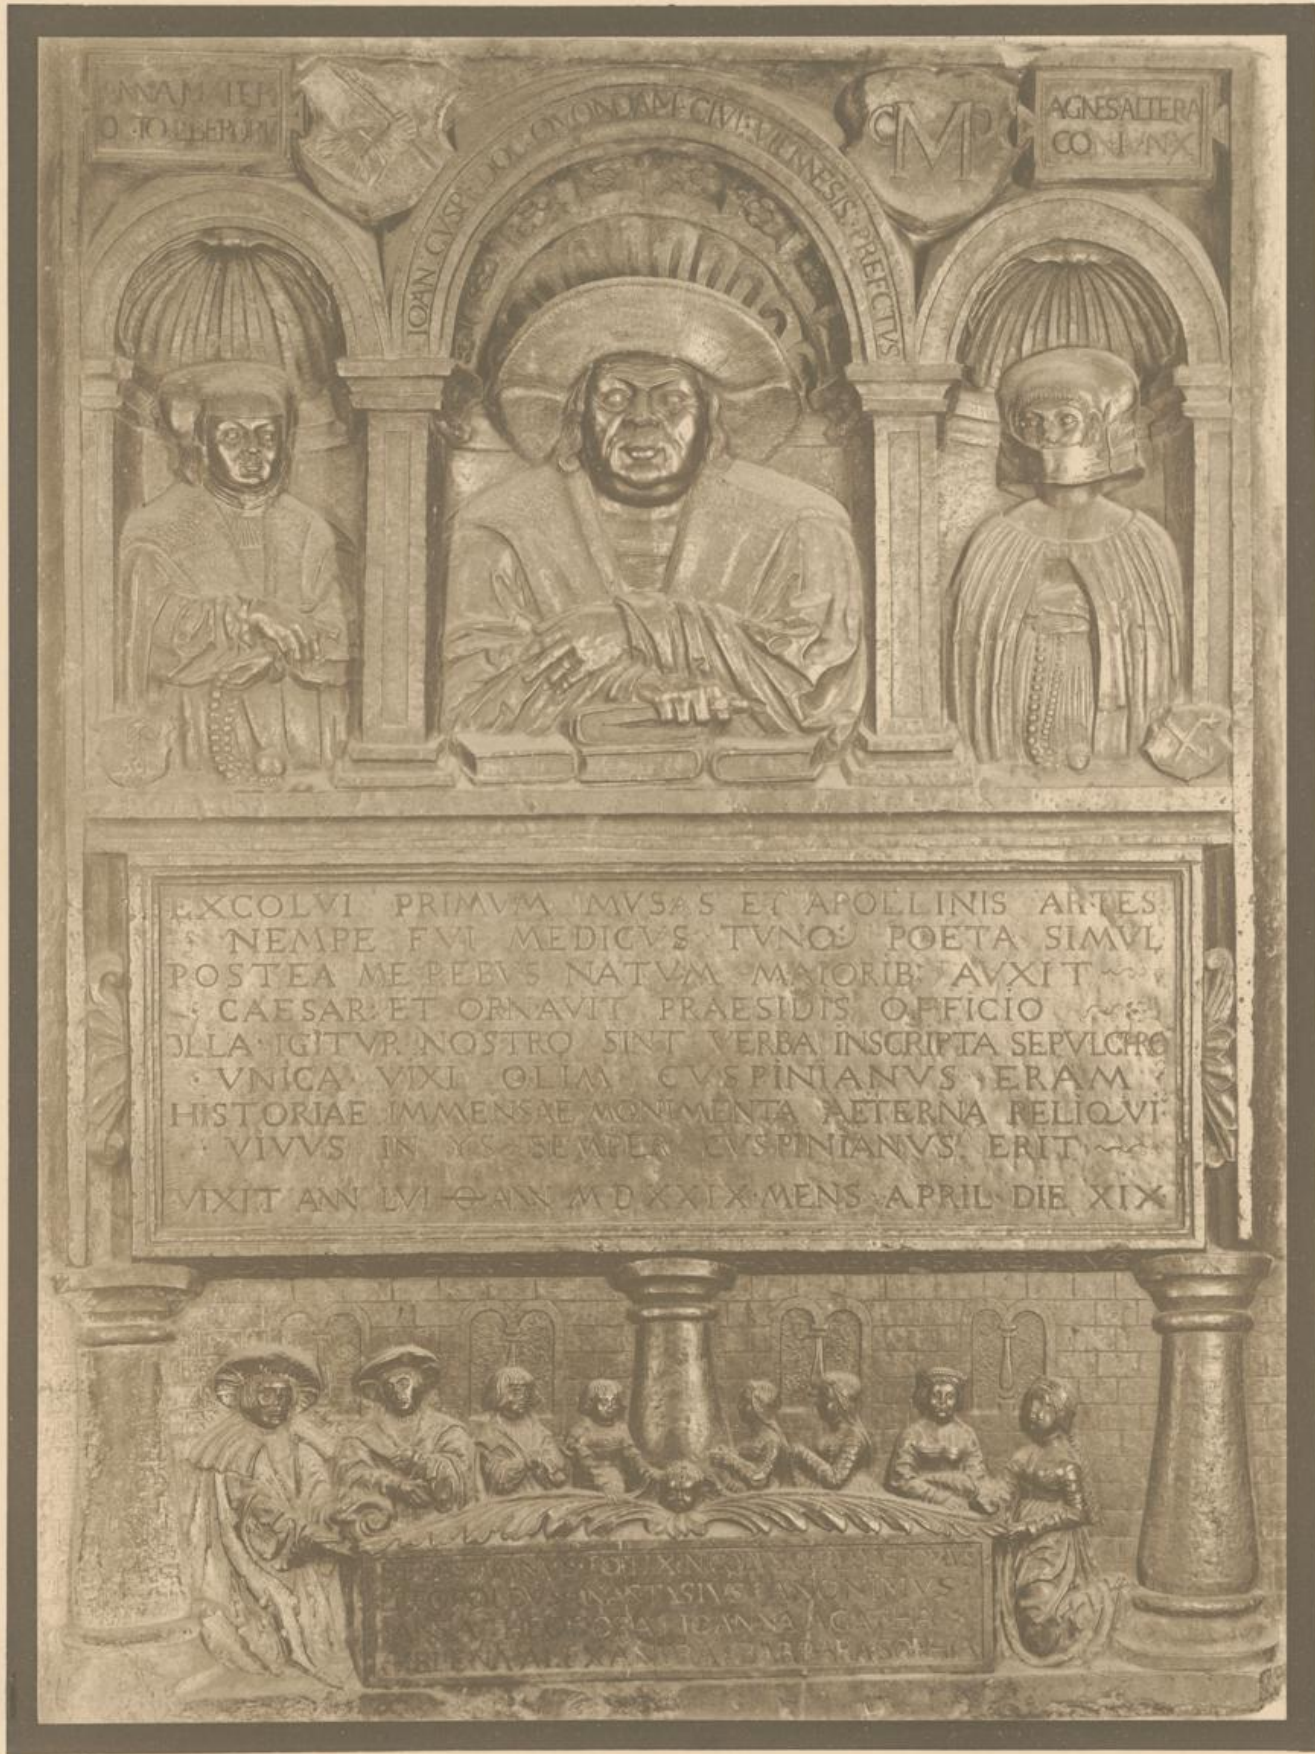 ANNAM TER
IOAN CVSP DOC QVONDAM CIVI VIENNESIS PREFECTVS
CMP
AGNES ALTERA
CONIVNX
EXCOLVI PRIMVM MVSAS ET APOLLINIS ARTES
NEMPE FVI MEDICVS TVNQ POETA SIMVL
POSTEA ME REBVS NATVM MAIORIB: AVXIT
CAESAR ET ORNAVIT PRAESIDIS OFFICIO
OLLA IGITVR NOSTRO SINT VERBA INSCRIPTA SEPVLCHRO
VNICA VIXI OLIM CVSPINIANVS ERAM
HISTORIAE IMMENSAE MONIMENTA AETERNA RELIQVI
VIVVS IN YS SEMPER CVSPINIANVS ERIT
VIXIT ANN LVI ANN MDXXIX MENS APRIL DIE XIX
ANASTASIVS
IOANNA AGATHA
BARBARA